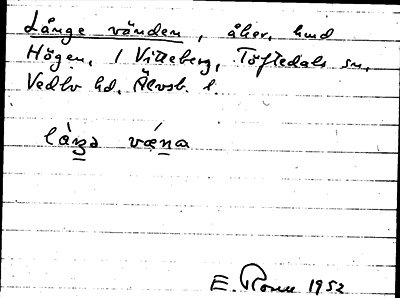 Långe vänden, åker, hmd
Högen, 1 Vitteberg, Töftedals sn,
Vedbo hd, Älvsb. l.
làŋə væ̀na
E. 1952